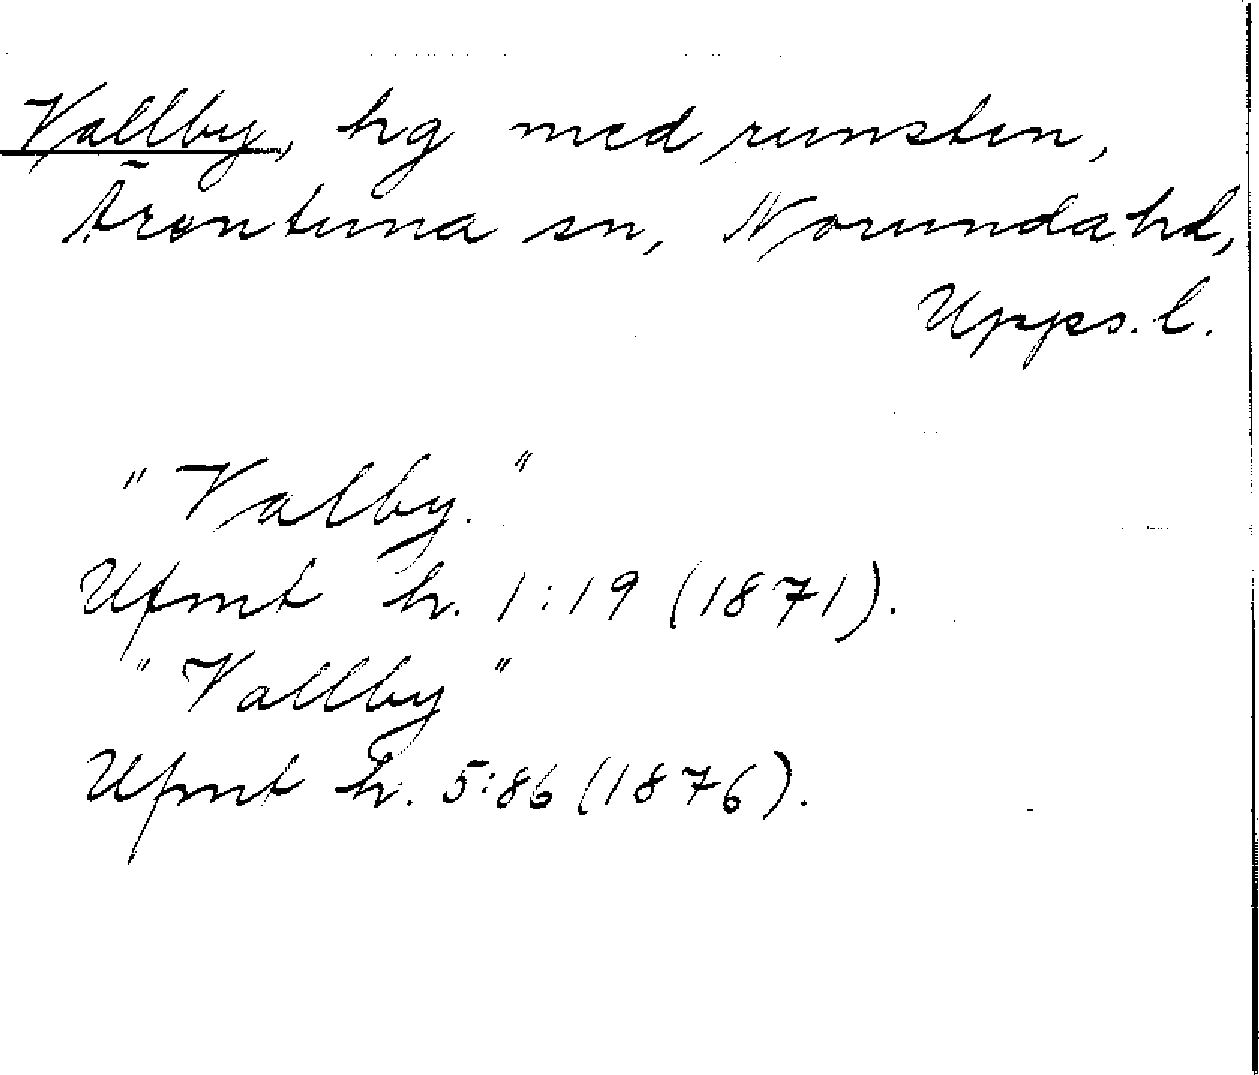 Vallby, hg med runsten,
Ärentuna sn, Norunda hd,
Upps. l.
"Valby."
Ufmt h. 1:19 (1871).
"Vallby"
Ufmt h. 5:86 (1876).